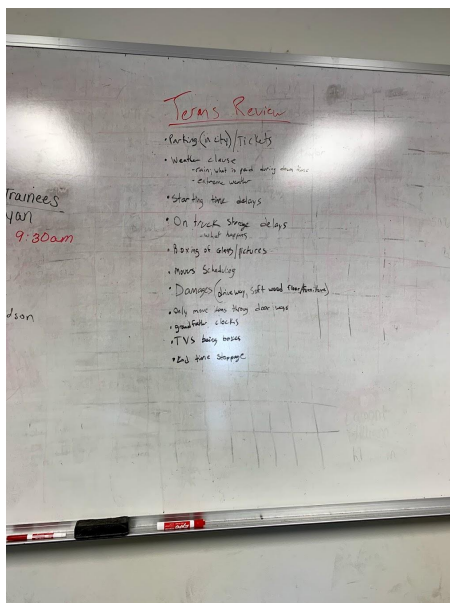 Terms Review
• Parking (in city) / Tickets
• Weather clause
- rain, what is paid during down time
- extreme weather
• Starting time delays
• On truck storage delays
- what happens
• Boxing of Glass/pictures
• Movers Scheduling
• Damages (driveway, soft wood floor/furniture)
• Only move items through door ways
• grandfather clocks
• TVs being boxes
• End time stoppage
Trainees
yan
9:30am
dson